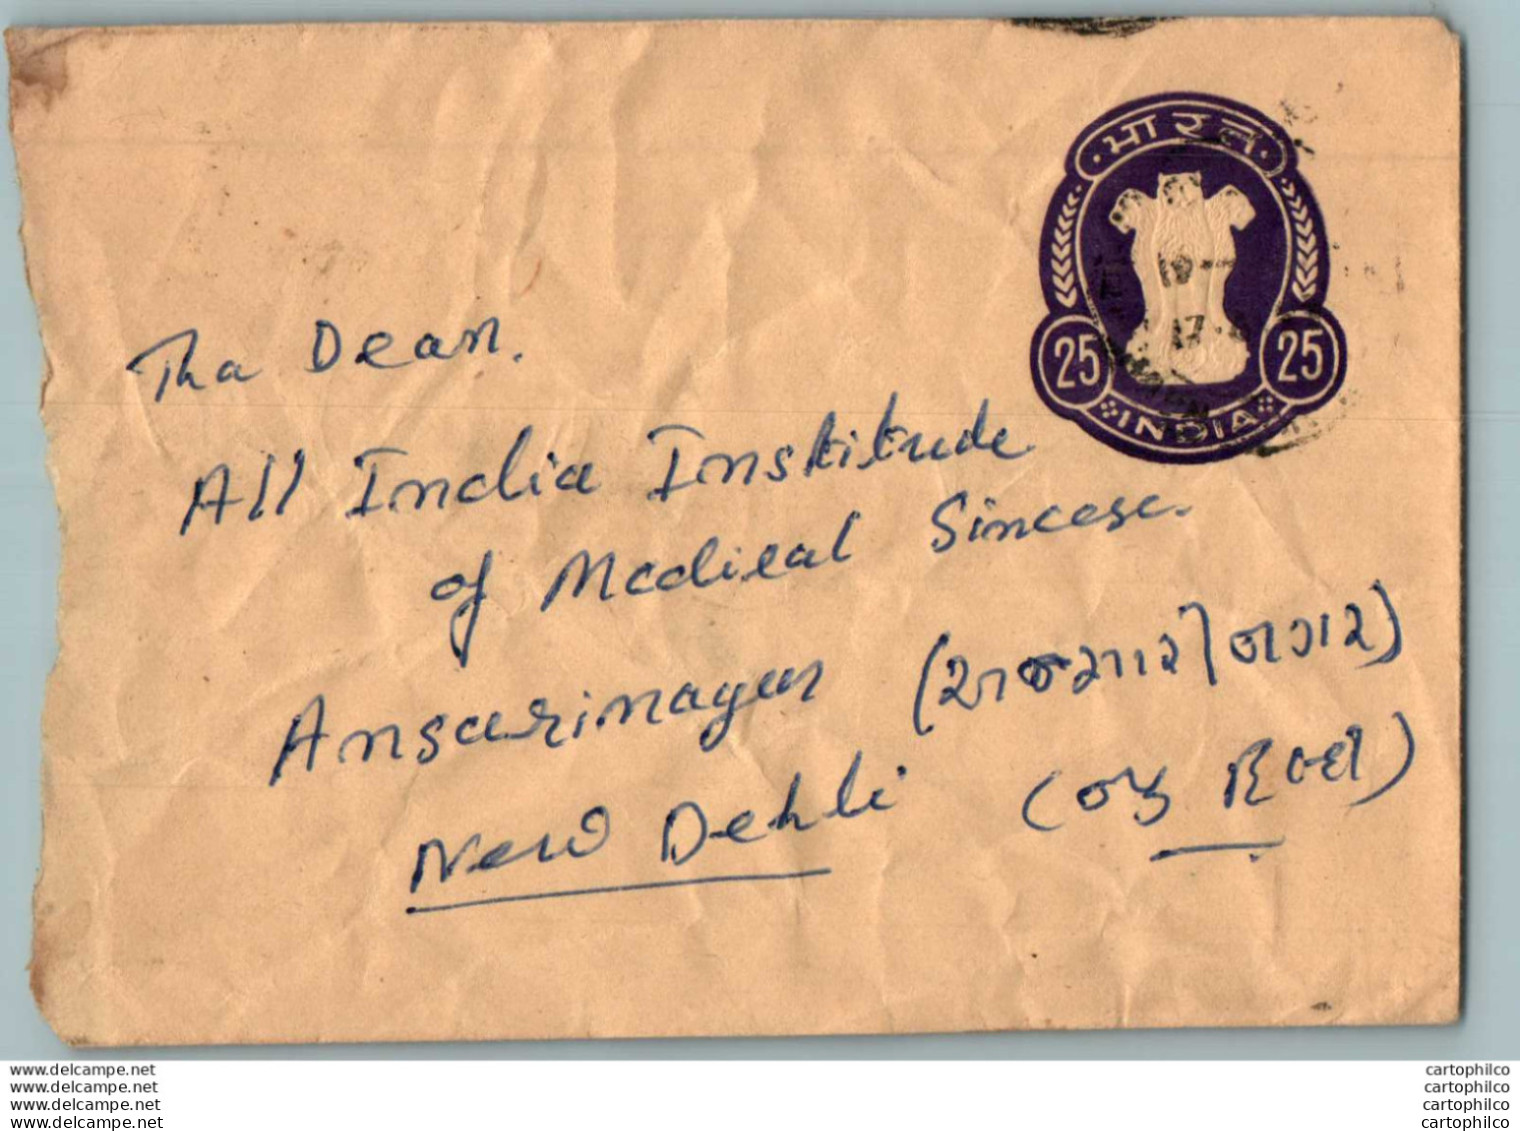 भारत
25 25
INDIA
Tha Dean.
All India Institude
of Medical Sincese.
Ansarinagar
New Dehli
www.delcampe.net cartophilco
www.delcampe.net cartophilco
www.delcampe.net cartophilco
www.delcampe.net cartophilco